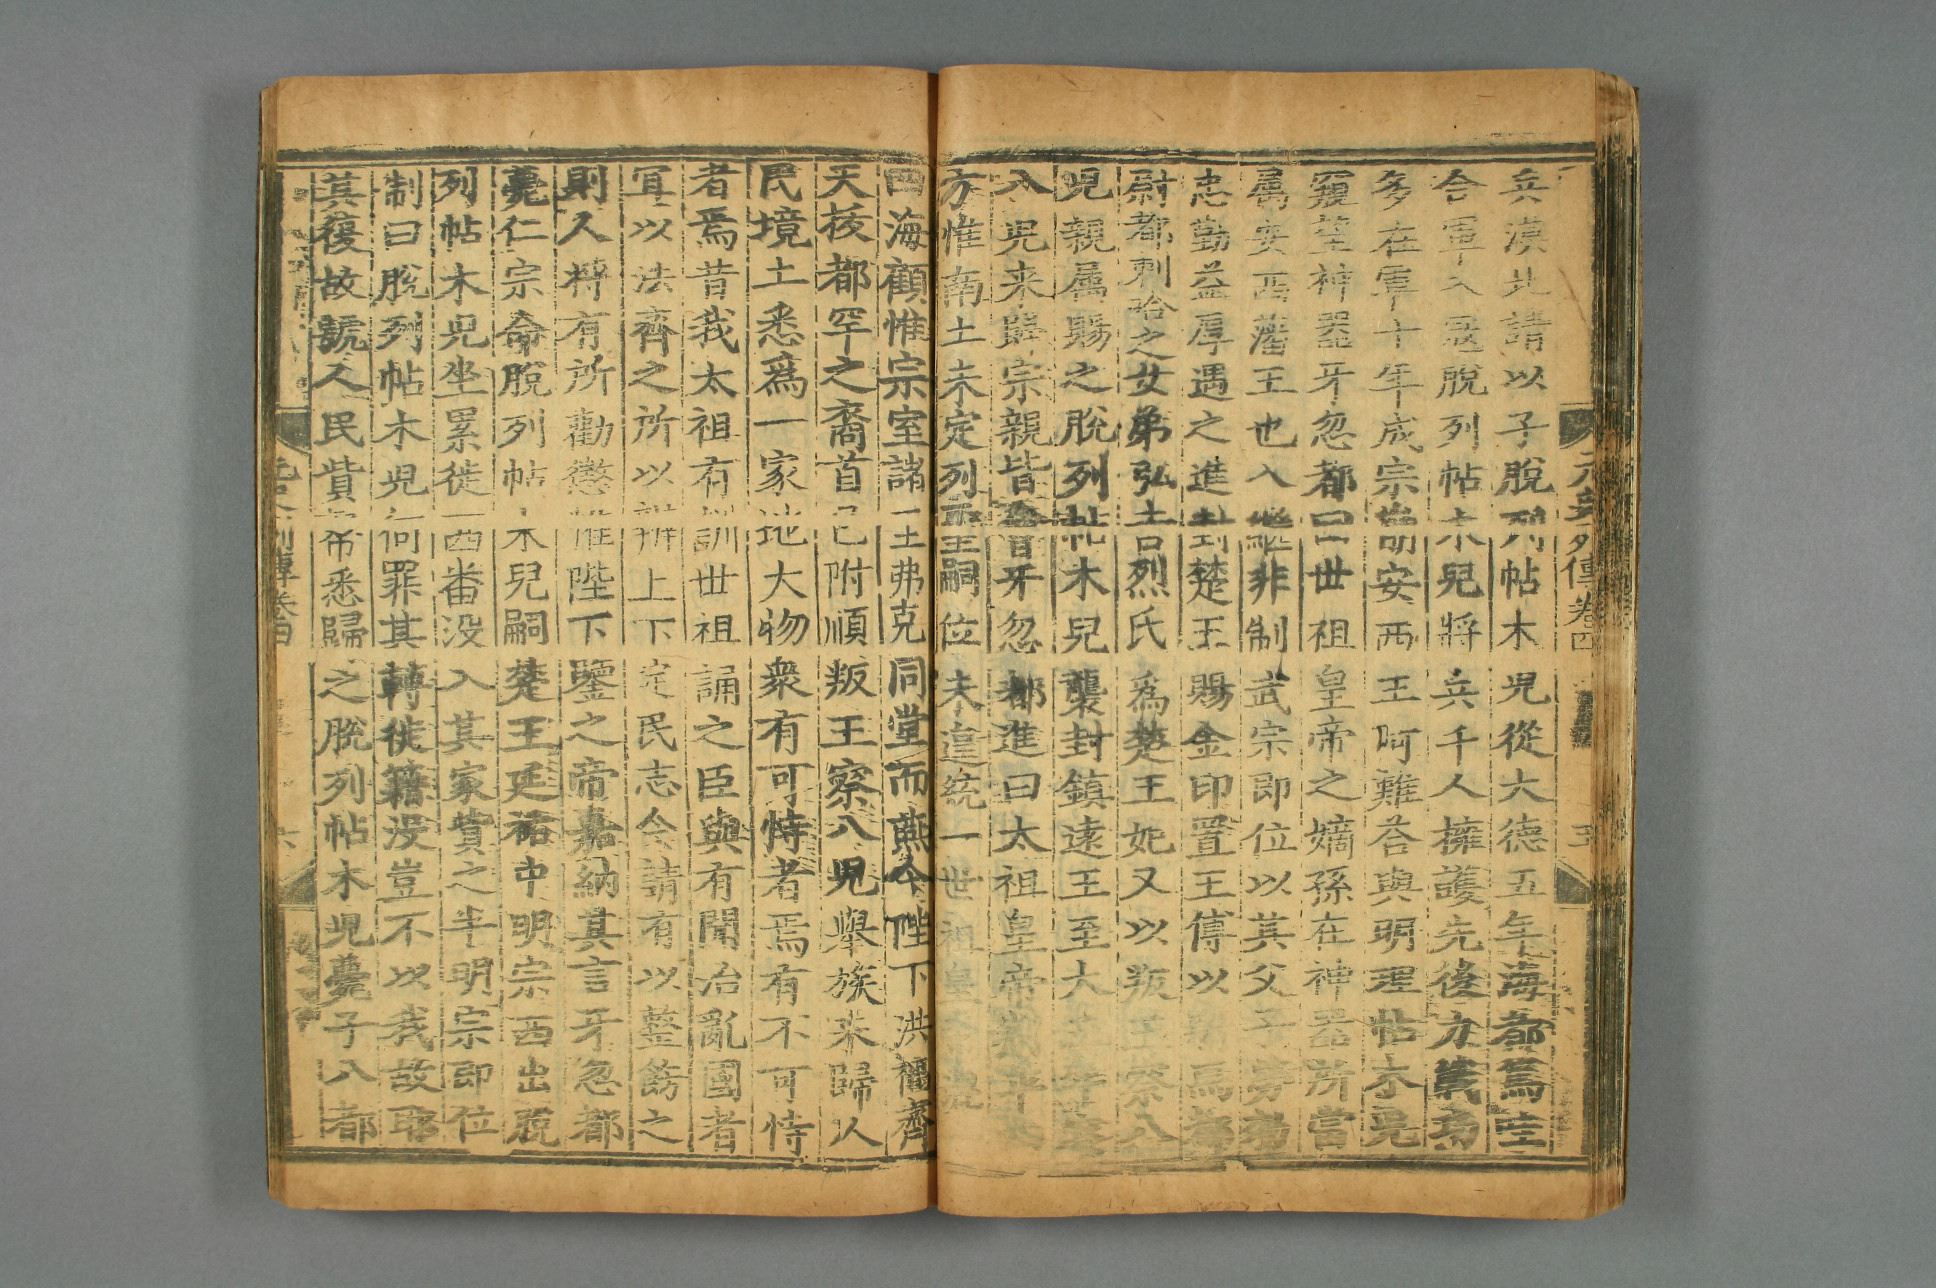 兵漠北請以子脫列帖木児從大德五年海都篤哇
合軍入寇脫列帖木兒將兵千人擁護先後力戰為
多在軍十年成宗崩安西王阿難荅與明理帖木兒
窺望神器牙忽都曰世祖皇帝之嫡孫在神器所當
属安西藩王也入継非制武宗即位以其父子勞勩
忠勤益厚遇之進封楚王賜金印置王傅以駙馬都
尉都剌哈之女弟弘吉烈氏為楚王妃又以叛王察八
児親属賜之脫列帖木兒襲封鎮遠王至大
八児来歸宗親皆會牙忽都進曰太祖皇帝
方惟南土未定列聖嗣位未遑統一世祖皇
四海顧惟宗室諸王弗克同堂而燕今陛下洪福齊
天拔都罕之裔首已附順叛王察八児舉族来歸人
民境土悉為一家地大物衆有可恃者焉有不可恃
者焉昔我太祖有訓世祖誦之臣與有聞治亂國者
冝以法齊之所以辨上下定民志今請有以整飭之
則人将有所勸懲惟陛下鑒之帝嘉納其言牙忽都
薨仁宗命脫列帖木兒嗣楚王延祐中明宗西出脫
列帖木児坐累徙西番没入其家貲之半明宗即位
制曰脫列帖木児何罪其轉徙籍没豈不以我故耶
其復故號人民貲帑悉歸之脫列帖木児薨子八都
元史列傳卷四
五